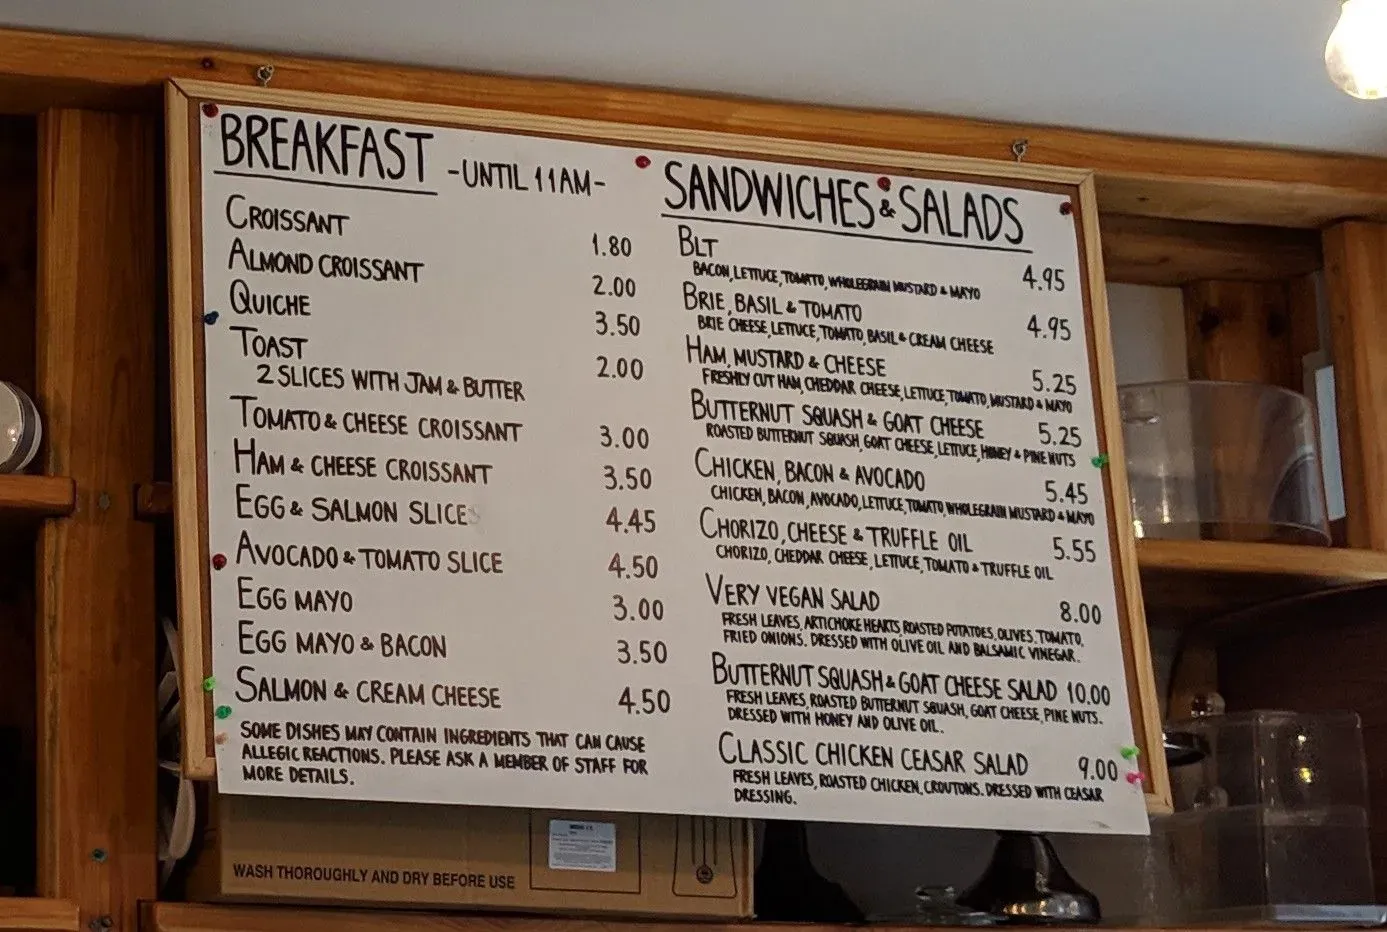 BREAKFAST -UNTIL 11AM-
CROISSANT 1.80
ALMOND CROISSANT 2.00
QUICHE 3.50
TOAST 2.00
2 SLICES WITH JAM & BUTTER
TOMATO & CHEESE CROISSANT 3.00
HAM & CHEESE CROISSANT 3.50
EGG & SALMON SLICE 4.45
AVOCADO & TOMATO SLICE 4.50
EGG MAYO 3.00
EGG MAYO & BACON 3.50
SALMON & CREAM CHEESE 4.50
SOME DISHES MAY CONTAIN INGREDIENTS THAT CAN CAUSE
ALLEGIC REACTIONS. PLEASE ASK A MEMBER OF STAFF FOR
MORE DETAILS.
SANDWICHES & SALADS
BLT 4.95
BACON, LETTUCE, TOMATO, WHOLEGRAIN MUSTARD & MAYO
BRIE, BASIL & TOMATO 4.95
BRIE CHEESE, LETTUCE, TOMATO, BASIL & CREAM CHEESE
HAM, MUSTARD & CHEESE 5.25
FRESHLY CUT HAM, CHEDDAR CHEESE, LETTUCE, TOMATO, MUSTARD & MAYO
BUTTERNUT SQUASH & GOAT CHEESE 5.25
ROASTED BUTTERNUT SQUASH, GOAT CHEESE, LETTUCE, HONEY & PINE NUTS
CHICKEN, BACON & AVOCADO 5.45
CHICKEN, BACON, AVOCADO, LETTUCE, TOMATO, WHOLEGRAIN MUSTARD & MAYO
CHORIZO, CHEESE & TRUFFLE OIL 5.55
CHORIZO, CHEDDAR CHEESE, LETTUCE, TOMATO & TRUFFLE OIL
VERY VEGAN SALAD 8.00
FRESH LEAVES, ARTICHOKE HEARTS, ROASTED POTATOES, OLIVES, TOMATO,
FRIED ONIONS. DRESSED WITH OLIVE OIL AND BALSAMIC VINEGAR.
BUTTERNUT SQUASH & GOAT CHEESE SALAD 10.00
FRESH LEAVES, ROASTED BUTTERNUT SQUASH, GOAT CHEESE, PINE NUTS.
DRESSED WITH HONEY AND OLIVE OIL.
CLASSIC CHICKEN CEASAR SALAD 9.00
FRESH LEAVES, ROASTED CHICKEN, CROUTONS. DRESSED WITH CEASAR
DRESSING.
WASH THOROUGHLY AND DRY BEFORE USE